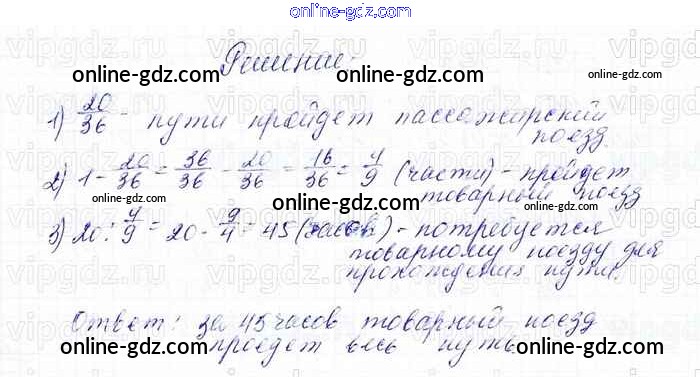 online-gdz.com
Решение:
online-gdz.com online-gdz.com online-gdz.com
1) 20/36 - пути пройдет пассажирский
поезд.
online-gdz.com online-gdz.com
2) 1 - 20/36 = 36/36 - 20/36 = 16/36 = 4/9 (части) - пройдет
товарный поезд
online-gdz.com online-gdz.com
3) 20 : 4/9 = 20 · 9/4 = 45 (часов) - потребуется
товарному поезду для
прохождения пути.
online-gdz.com online-gdz.com
Ответ: за 45 часов товарный поезд
проедет весь путь.
online-gdz.com online-gdz.com online-gdz.com
online-gdz.com